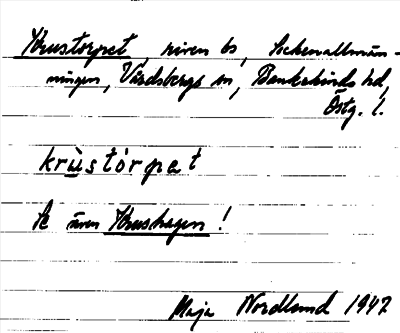 Krustorpet, riven bs, Sockenallmän-
ningen, Vårdsbergs sn, Bankekinds hd,
Östg. l.
krùstórpat
Se även Krushagen!
Maja Nordlund 1947